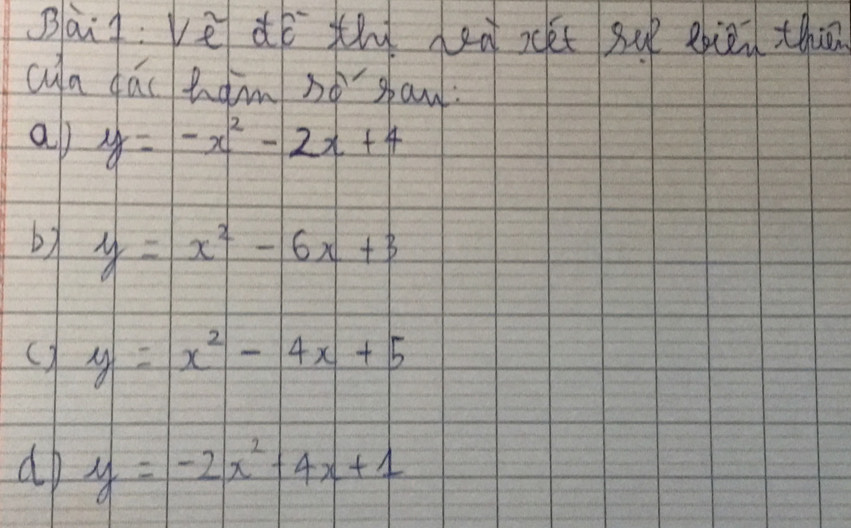 Bài 1: Vẽ đồ thị và xét sự biến thiên
của các hàm số sau:
a) y = -x² - 2x + 4
b) y = x² - 6x + 3
c) y = x² - 4x + 5
d) y = -2x² + 4x + 1